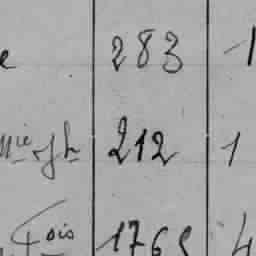 e 283 1
Mie Jh 212 1
Fois 1765 4